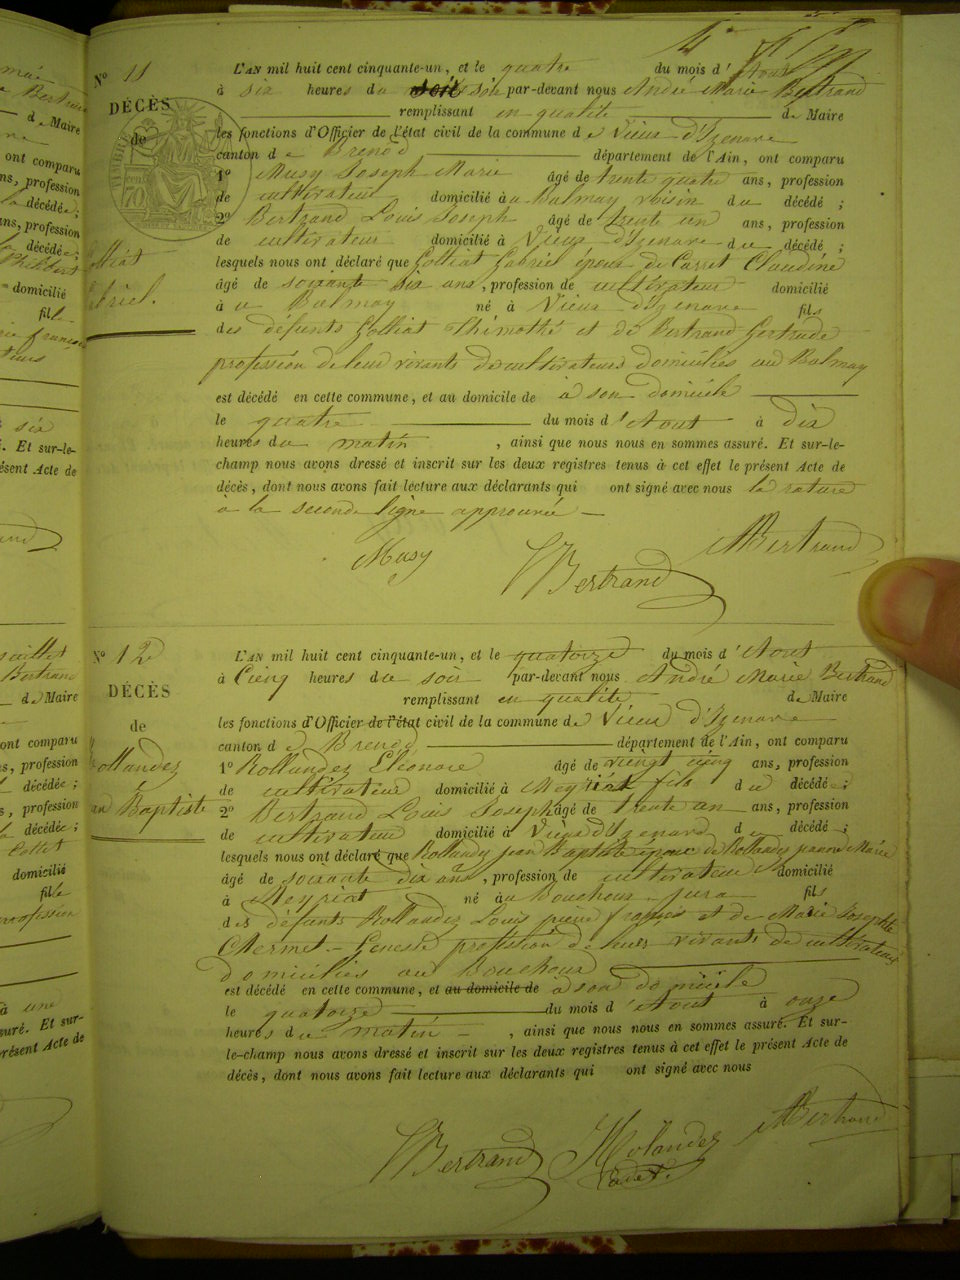 N° 11
DÉCÈS
de
Golliat
Gabriel.
L'AN mil huit cent cinquante-un, et le quatre du mois d'Aout
à six heures du soir par-devant nous André Marie Bertrand
remplissant en qualité de Maire
les fonctions d'Officier de l'état civil de la commune de Vieux d'Izenave
canton de Brenod département de l'Ain, ont comparu
1° Musy Joseph Marie âgé de trente quatre ans, profession
de cultivateur domicilié au Balmay voisin du décédé ;
2° Bertrand Louis Joseph âgé de trente un ans, profession
de cultivateur domicilié à Vieux d'Izenave du décédé ;
lesquels nous ont déclaré que Golliat Gabriel epoux de Carret Claudine
âgé de soixante six ans, profession de cultivateur domicilié
à au Balmay né à Vieux d'Izenave fils
des défunts Golliat Thimothé et de Bertrand Gertrude
profession de leur vivants de cultivateurs domiciliés au Balmay
est décédé en cette commune, et au domicile de à son domicile
le quatre du mois d'Aout à dix
heures du matin, ainsi que nous nous en sommes assuré. Et sur-le-
champ nous avons dressé et inscrit sur les deux registres tenus à cet effet le présent Acte de
décès, dont nous avons fait lecture aux déclarants qui ont signé avec nous la rature
à la seconde ligne approuvée
Musy Bertrand Bertrand
N° 12
DÉCÈS
de
Rollandez
Jean Baptiste
L'AN mil huit cent cinquante-un, et le quatorze du mois d'Aout
à Cinq heures du soir par-devant nous André Marie Bertrand
remplissant en qualité de Maire
les fonctions d'Officier de l'état civil de la commune de Vieux d'Izenave
canton de Brenod département de l'Ain, ont comparu
1° Rollandez Eléonore âgé de vingt cinq ans, profession
de cultivateur domicilié à Meyriat fils du décédé ;
2° Bertrand Louis Joseph âgé de trente un ans, profession
de cultivateur domicilié à Vieux d'Izenave du décédé ;
lesquels nous ont déclaré que Rollandez Jean Baptiste epoux de Rollandez Marie
âgé de soixante dix ans, profession de cultivateur domicilié
à Meyriat né au Bouchoux Jura fils
des défunts Rollandez Louis pierre françois et de Marie Josephte
Chermet profession de leurs vivants de cultivateurs
domiciliés au Bouchoux
est décédé en cette commune, et au domicile de à son domicile
le quatorze du mois d'Aout à onze
heures du matin, ainsi que nous nous en sommes assuré. Et sur-
le-champ nous avons dressé et inscrit sur les deux registres tenus à cet effet le présent Acte de
décès, dont nous avons fait lecture aux déclarants qui ont signé avec nous
Bertrand Rolandez Bertrand
Cadet.